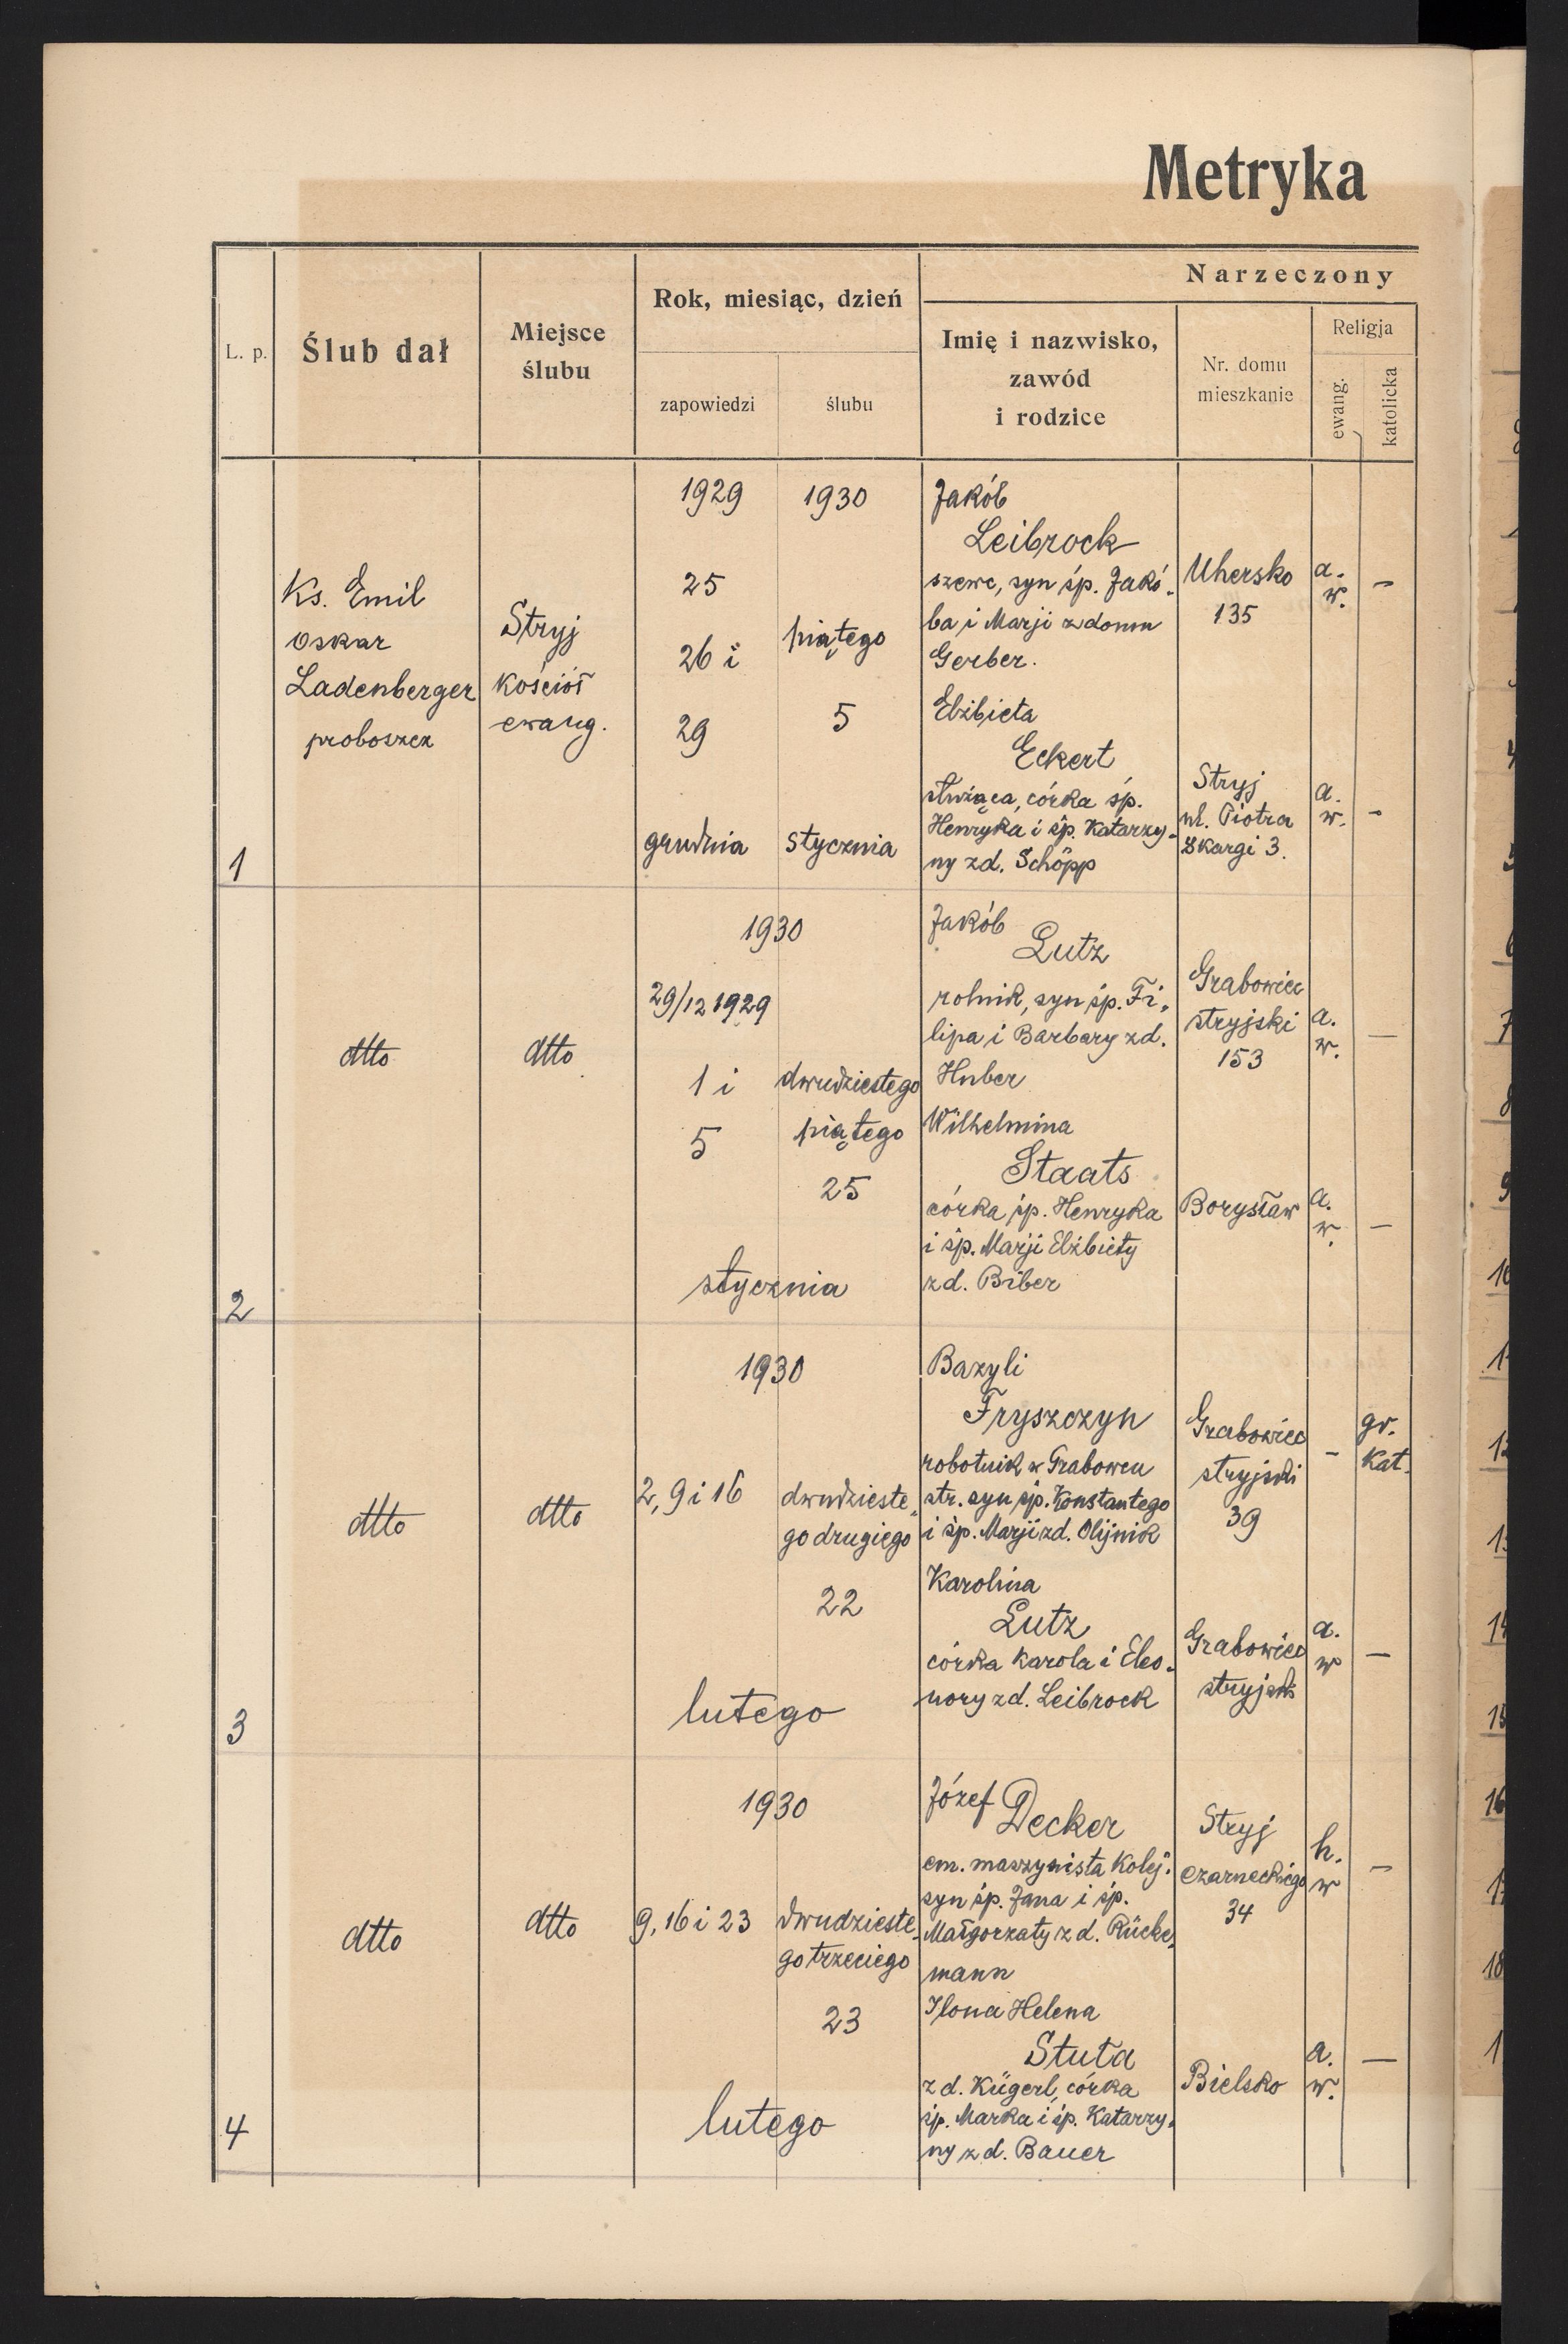 Metryka
Narzeczony
L. p.
Ślub dał
Miejsce
ślubu
Rok, miesiąc, dzień
zapowiedzi
ślubu
Imię i nazwisko,
zawód
i rodzice
Nr. domu
mieszkanie
Religja
ewang.
katolicka
1
Ks. Emil
Oskar
Ladenberger
proboszcz
Stryj
kościół
ewang.
1929
25
26 i
29
grudnia
1930
piątego
5
stycznia
Jakób
Leibrock
szewc, syn śp. Jakó-
ba i Marji z domu
Gerber.
Uhersko
135
a.
w.
–
Elżbieta
Eckert
służąca, córka śp.
Henryka i śp. Katarzy-
ny zd. Schöpp
Stryj
ul. Piotra
Skargi 3.
a.
w.
–
2
dtto
dtto
1930
29/12 1929
1 i
5
dwudziestego
piątego
25
stycznia
Jakób
Lutz
rolnik, syn śp. Fi-
lipa i Barbary zd.
Huber
Grabowiec
stryjski
153
a.
w.
–
Wilhelmina
Staats
córka śp. Henryka
i śp. Marji Elżbiety
zd. Biber
Borysław
a.
w.
–
3
dtto
dtto
1930
2, 9 i 16
dwudzieste-
go drugiego
22
lutego
Bazyli
Fryszczyn
robotnik w Grabowcu
str. syn śp. Konstantego
i śp. Marji zd. Olijnik
Grabowiec
stryjski
39
–
gr.
kat.
Karolina
Lutz
córka Karola i Eleo-
nory zd. Leibrock
Grabowiec
stryjski
a.
w
–
4
dtto
dtto
1930
9, 16 i 23
dwudzieste-
go trzeciego
23
lutego
Józef
Decker
em. maszynista kolej.
syn śp. Jana i śp.
Małgorzaty zd. Rücke-
mann
Stryj
Czarneckiego
34
h.
w
–
Ilona Helena
Stuta
zd. Kügerl, córka
śp. Marka i śp. Katarzy-
ny zd. Bauer
Bielsko
a.
w.
–